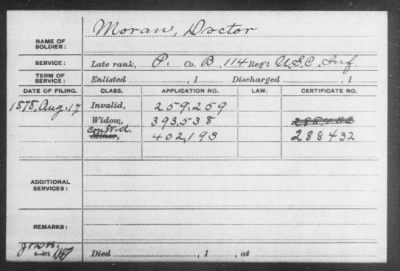 NAME OF SOLDIER: Moran, Doctor
SERVICE: Late rank, P. Co. B, 114 Reg't U.S.C. Inf.
TERM OF SERVICE: Enlisted , 1 Discharged , 1
DATE OF FILING. CLASS. APPLICATION NO. LAW. CERTIFICATE NO.
1878, Aug. 17 Invalid, 259,259
Widow, 393,538 288432
Cont Wid. Minor, 402,193 288432
ADDITIONAL SERVICES:
REMARKS:
Died , 1 , at